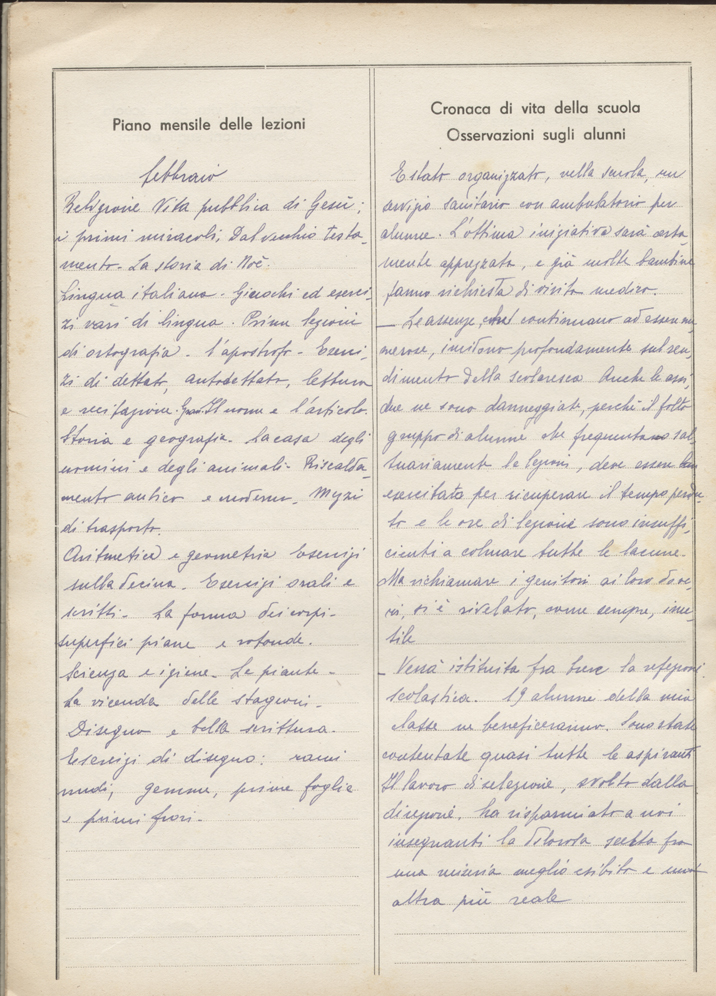 Piano mensile delle lezioni
febbraio
Religione Vita pubblica di Gesù;
i primi miracoli, Dal vecchio testa-
mento - La storia di Noè.
Lingua italiana - Giuochi ed eserci-
zi vari di lingua. Prime lezioni
di ortografia - l'apostrofo - Eserci-
zi di dettato, autodettato, lettura
e recitazione. Gram. Il nome e l'articolo.
Storia e geografia - La casa degli
uomini e degli animali - Riscalda-
mento antico e moderno. Mezzi
di trasporto.
Aritmetica e geometria Esercizi
sulla decina - Esercizi orali e
scritti - La forma dei corpi -
superfici piane e rotonde.
Scienza e igiene - Le piante -
La vicenda delle stagioni -
Disegno e bella scrittura.
Esercizi di disegno: rami
nudi, gemme, prime foglie
e primi fiori -
Cronaca di vita della scuola
Osservazioni sugli alunni
E' stato organizzato, nella scuola, un
servizio sanitario con ambulatorio per
alunne. L'ottima iniziativa sarà certa-
mente apprezzata, e già molte bambine
fanno richiesta di visita medica.
- Le assenze, che continuano ad essere nu
merose, incidono profondamente sul ren
dimento della scolaresca. Anche le assi,
due ne sono danneggiate, perchè il folto
gruppo di alunne che frequentano sal
tuariamente le lezioni, deve essere ben
esercitato per ricuperare il tempo perdu-
to e le ore di lezione sono insuffi,
cienti a colmare tutte le lacune.
Ma richiamare i genitori ai loro dove,
ri, si è rivelato, come sempre, inu-
tile
- Verrà istituita fra breve la refezione
scolastica. 19 alunne della mia
classe ne beneficeranno. Sono state
contentate quasi tutte le aspiranti
Il lavoro di selezione, svolto dalla
direzione, ha risparmiato a noi
insegnanti la dolorosa scelta fra
una miseria meglio esibita e una
altra più reale